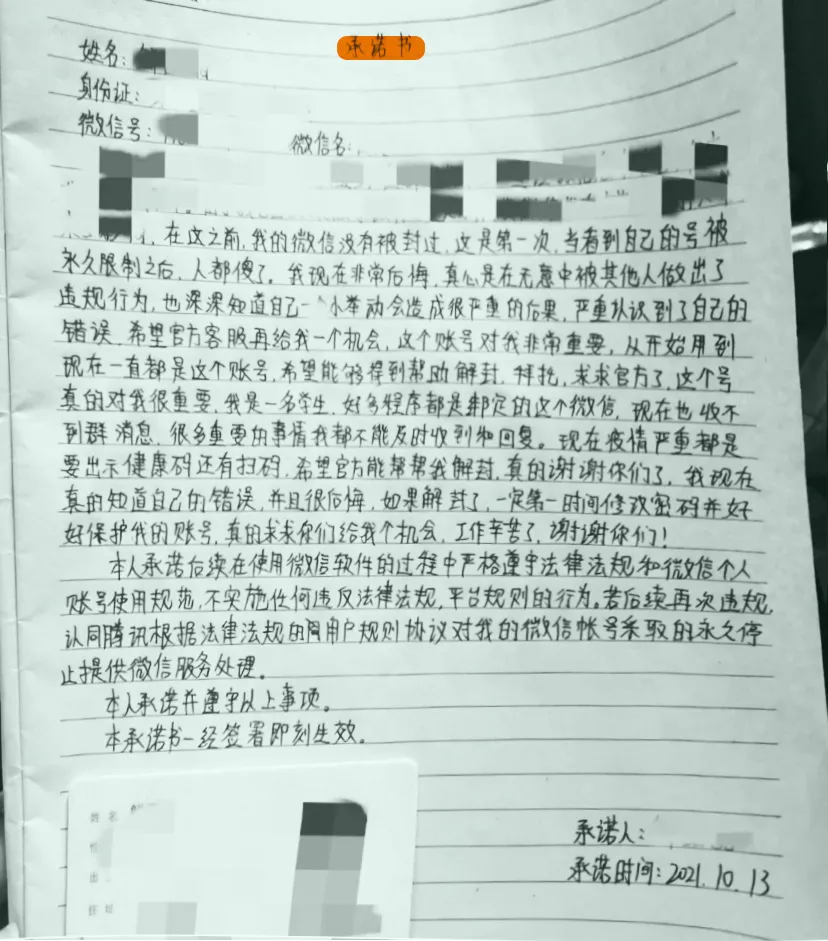 承诺书
姓名:
身份证:
微信号:
微信名:
在这之前,我的微信没有被封过,这是第一次,当看到自己的号被
永久限制之后,人都傻了。我现在非常后悔,真心是在无意中被其他人做出了
违规行为,也深深知道自己一个小举动会造成很严重的后果,严重认识到了自己的
错误,希望官方客服再给我一个机会,这个账号对我非常重要,从开始用到
现在一直都是这个账号,希望能够得到帮助解封,拜托,求求官方了,这个号
真的对我很重要,我是一名学生,好多程序都是绑定的这个微信,现在也收不
到群消息,很多重要的事情我都不能及时收到和回复。现在疫情严重都是
要出示健康码还有扫码,希望官方能帮帮我解封,真的谢谢你们了,我现在
真的知道自己的错误,并且很后悔,如果解封了,一定第一时间修改密码并好
好保护我的账号,真的求求你们给我个机会,工作辛苦了,谢谢你们!
本人承诺后续在使用微信软件的过程中严格遵守法律法规和微信个人
账号使用规范,不实施任何违反法律法规,平台规则的行为。若后续再次违规,
认同腾讯根据法律法规的用户规则协议对我的微信帐号采取的永久停
止提供微信服务处理。
本人承诺并遵守以上事项。
本承诺书一经签署即刻生效。
姓名
承诺人:
承诺时间:2021.10.13